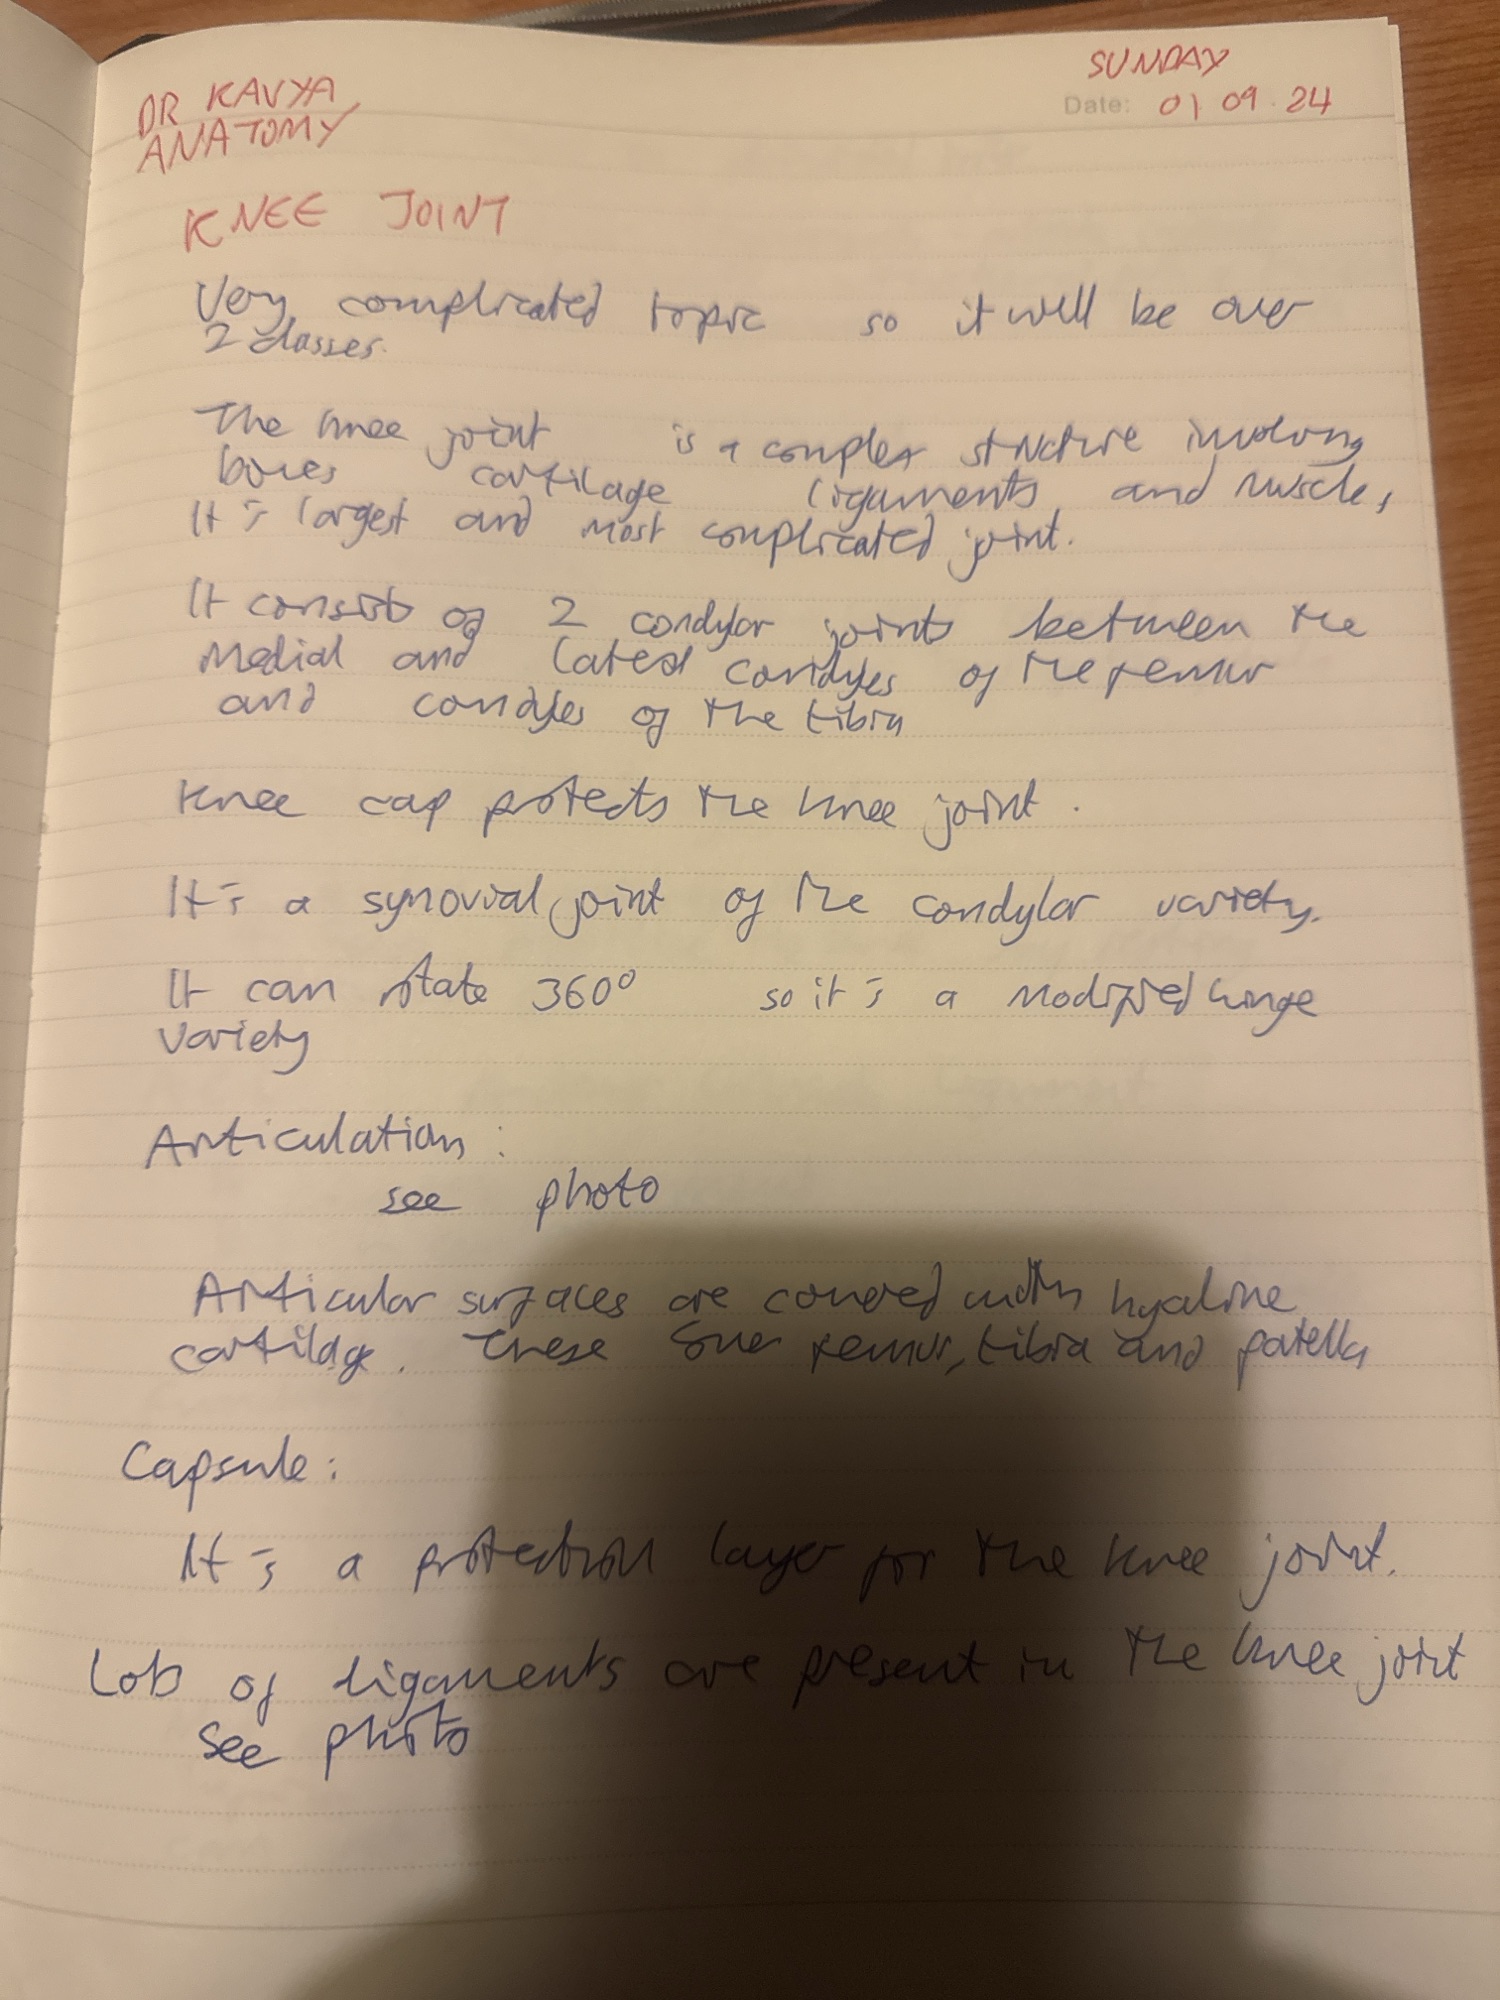 DR KAVYA
ANATOMY
SUNDAY
Date: 01 09 24
KNEE JOINT
Very complicated topic so it will be over
2 classes.
The knee joint is a complex structure involving
bones cartilage ligaments and muscles,
It is largest and most complicated joint.
It consists of 2 condylar joints between the
medial and lateral condyles of the femur
and condyles of the tibia
Knee cap protects the knee joint.
It is a synovial joint of the condylar variety.
It can rotate 360° so it is a modified hinge
variety
Articulation:
see photo
Articular surfaces are covered with hyaline
cartilage. These femur, tibia and patella
Capsule:
It is a protection layer for the knee joint.
Lots of ligaments are present in the knee joint
see photo